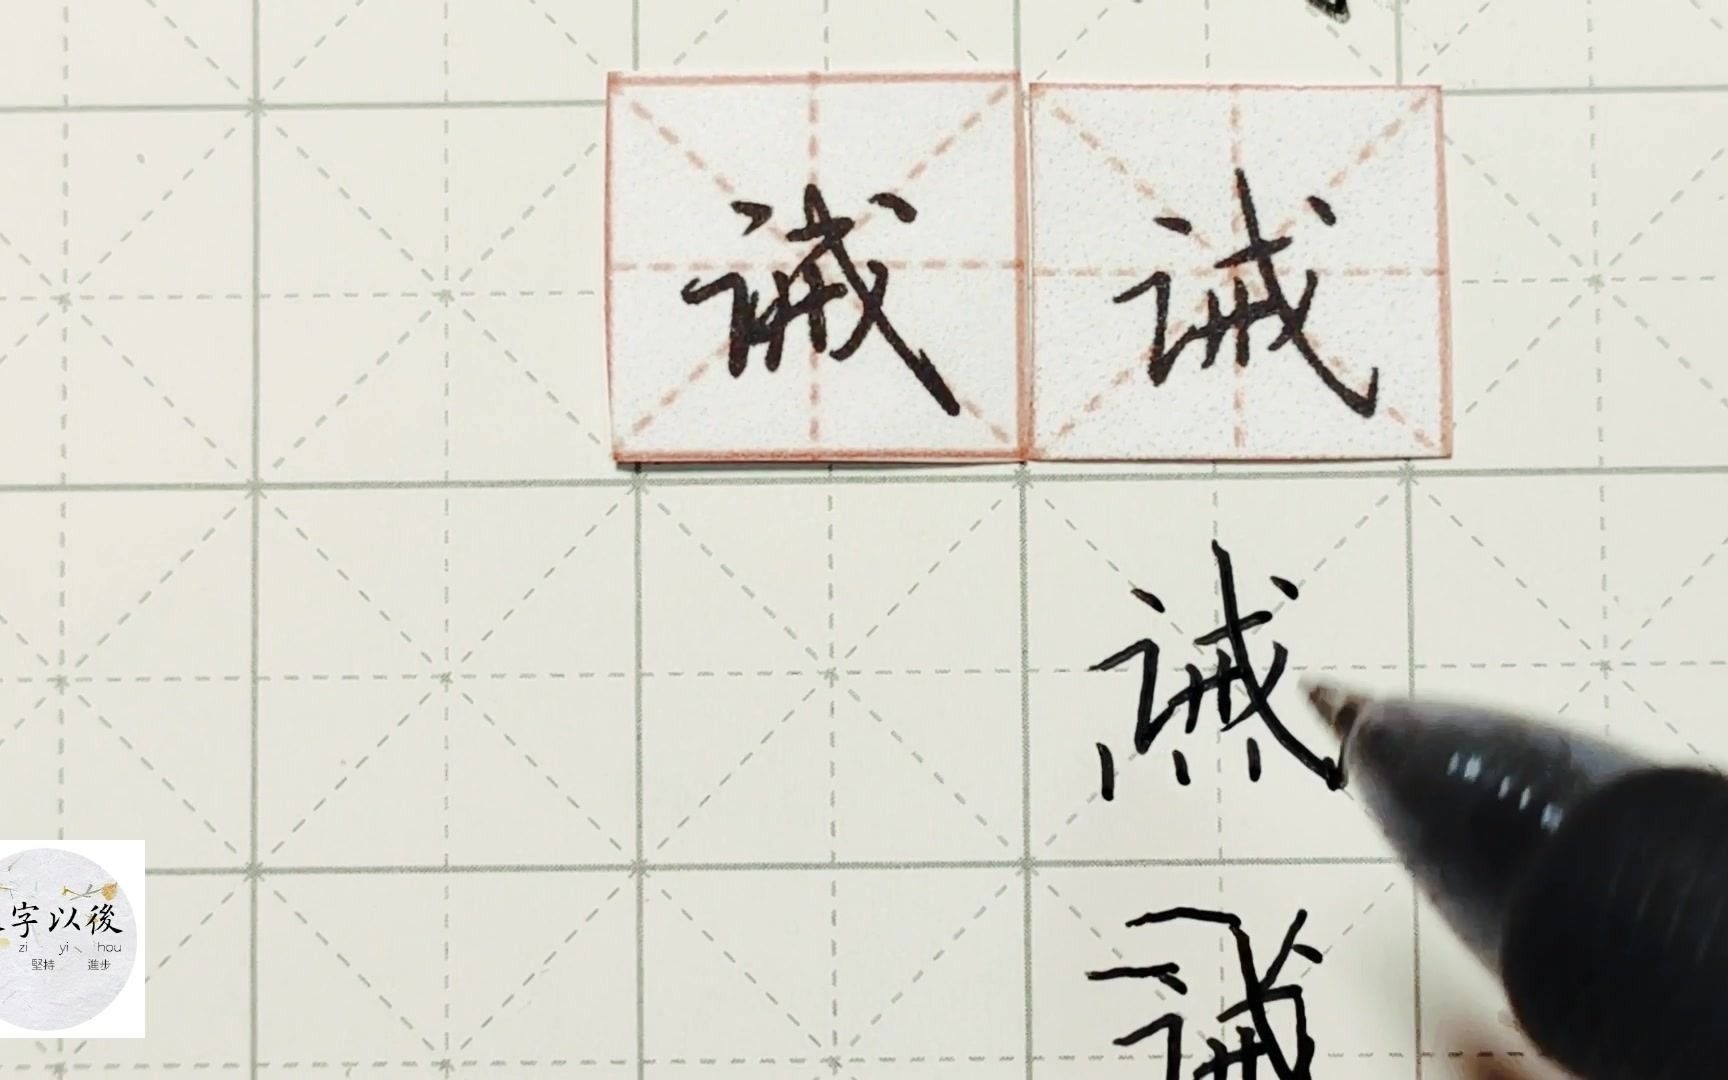 诫 诫
诫
诫
字以後
zi yi hou
堅持 進步